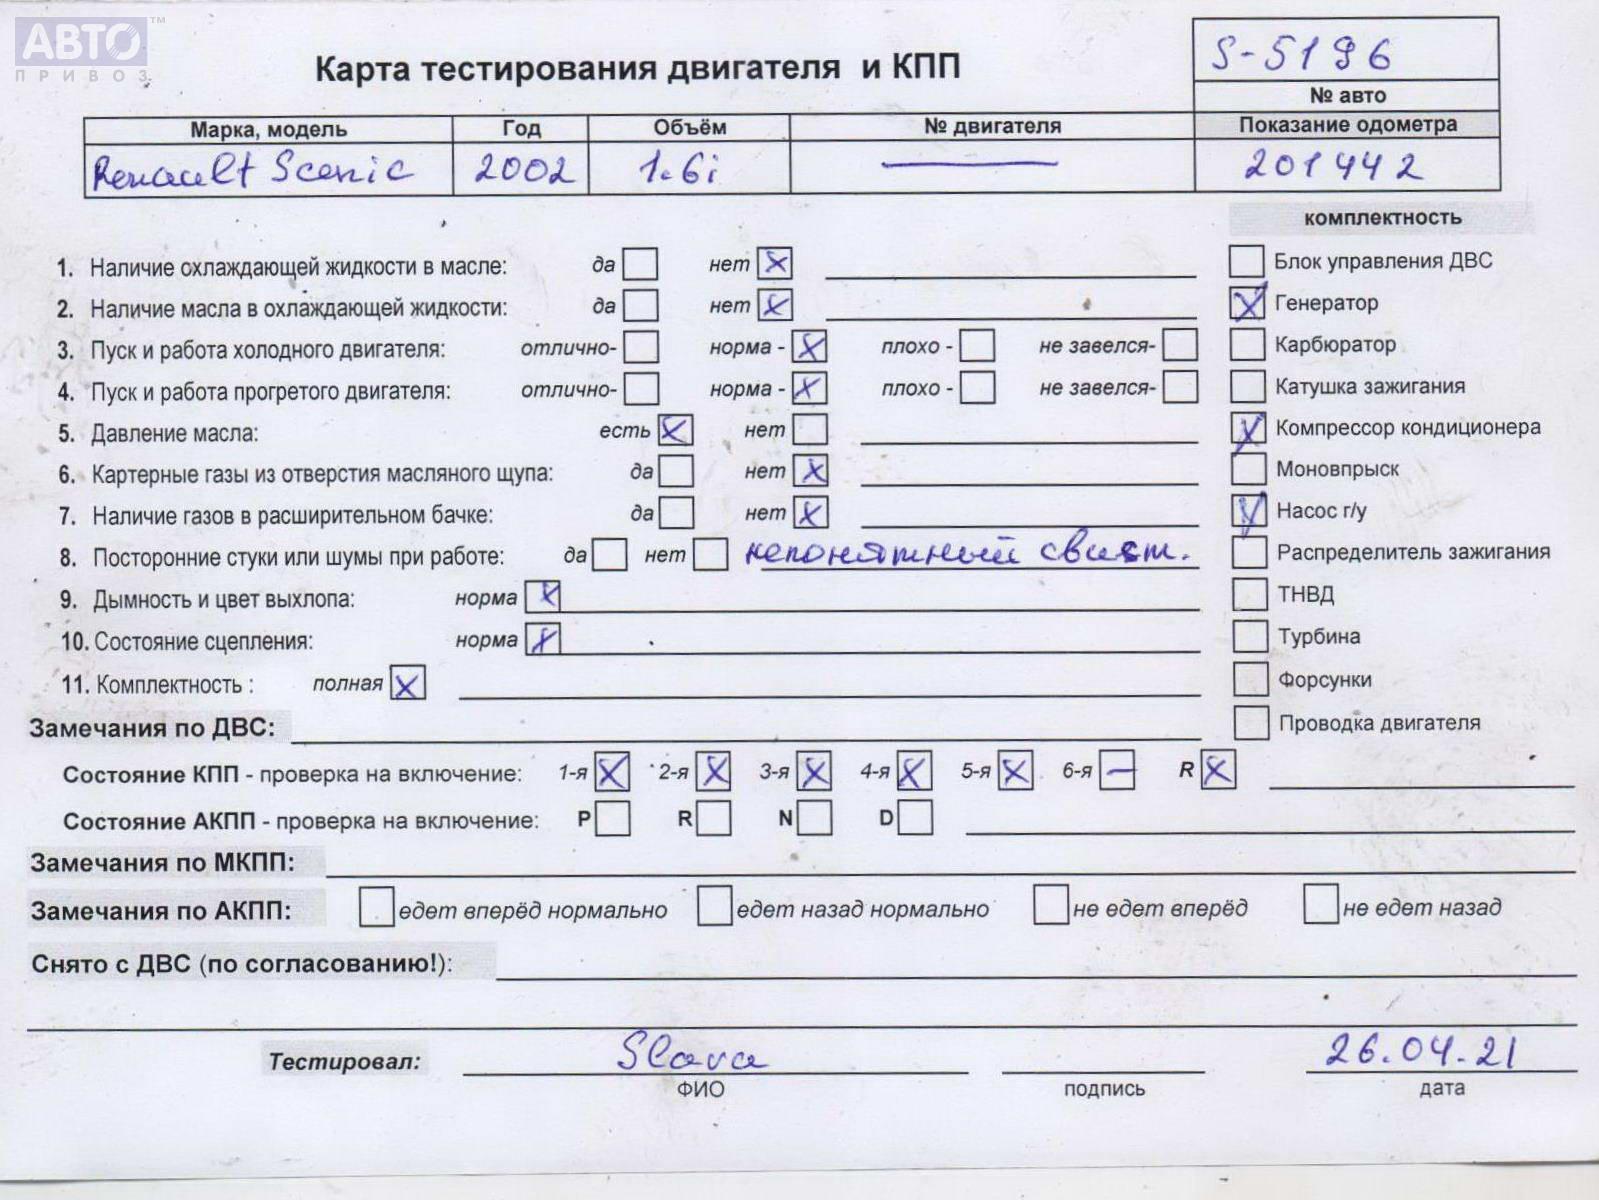 АВТО™
ПРИВОЗ
Карта тестирования двигателя и КПП
S-5196
№ авто
Марка, модель Год Объём № двигателя Показание одометра
Renault Scenic 2002 1.6i — 201442
комплектность
1. Наличие охлаждающей жидкости в масле: да нет x
Блок управления ДВС
2. Наличие масла в охлаждающей жидкости: да нет x
x Генератор
3. Пуск и работа холодного двигателя: отлично- норма - x плохо - не завелся-
Карбюратор
4. Пуск и работа прогретого двигателя: отлично- норма - x плохо - не завелся-
Катушка зажигания
5. Давление масла: есть x нет
x Компрессор кондиционера
6. Картерные газы из отверстия масляного щупа: да нет x
Моновпрыск
7. Наличие газов в расширительном бачке: да нет x
x Насос г/у
8. Посторонние стуки или шумы при работе: да нет непонятный свист.
Распределитель зажигания
9. Дымность и цвет выхлопа: норма x
ТНВД
10. Состояние сцепления: норма x
Турбина
11. Комплектность : полная x
Форсунки
Замечания по ДВС:
Проводка двигателя
Состояние КПП - проверка на включение: 1-я x 2-я x 3-я x 4-я x 5-я x 6-я — R x
Состояние АКПП - проверка на включение: P R N D
Замечания по МКПП:
Замечания по АКПП: едет вперёд нормально едет назад нормально не едет вперёд не едет назад
Снято с ДВС (по согласованию!):
Тестировал: Slava 26.04.21
ФИО подпись дата